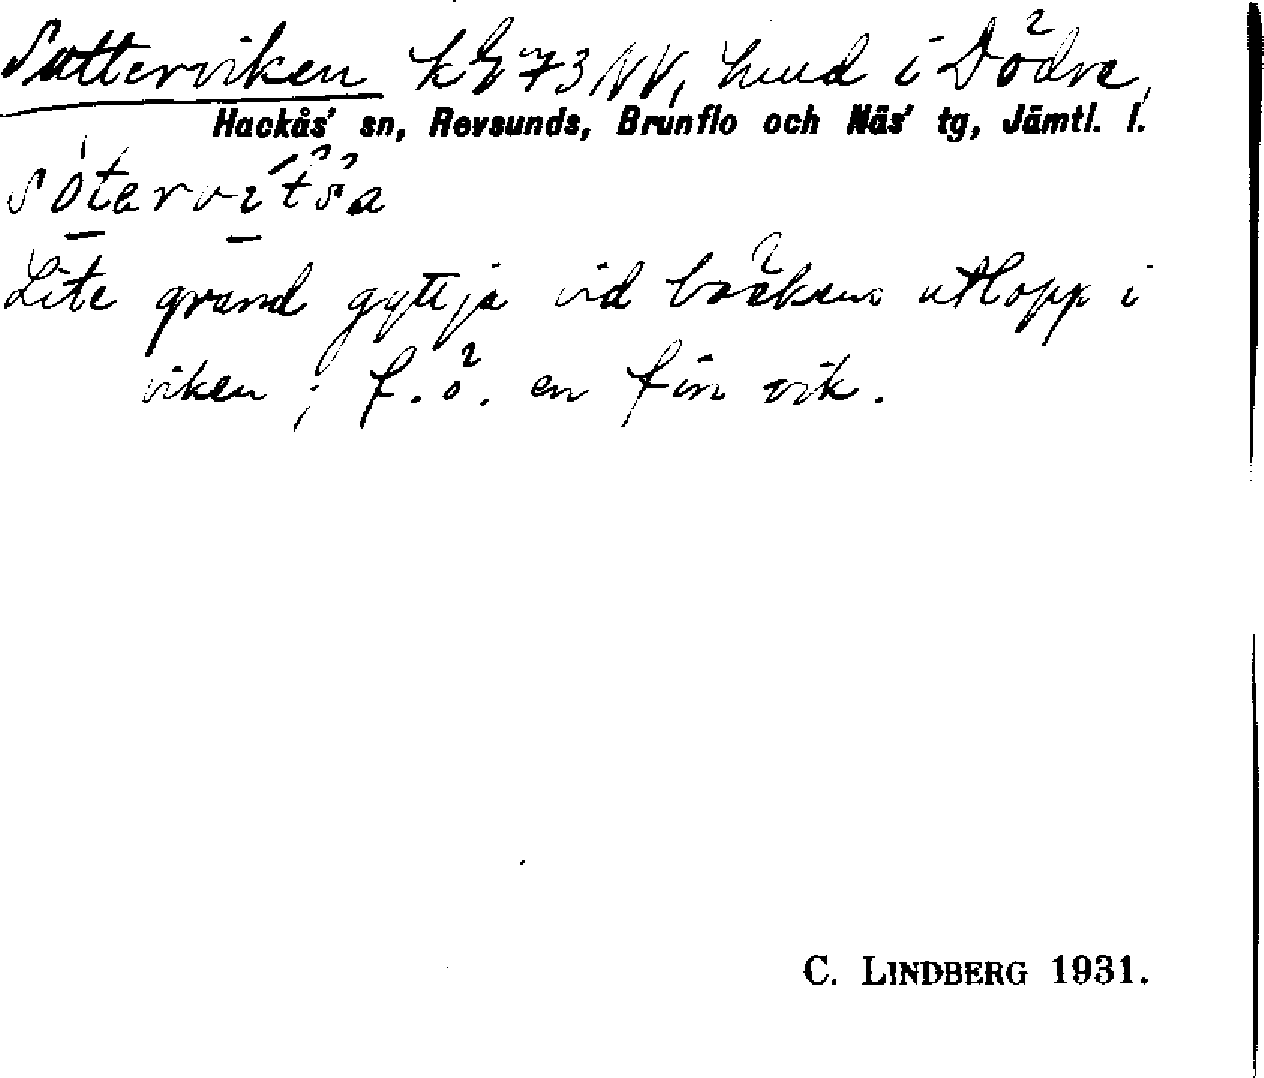 Sutterviken kE 73 NV, hmd i Dödre,
Hackås' sn, Revsunds, Brunflo och Näs' tg, Jämtl. l.
Lite grand gyttja vid bäckens utlopp i
viken; f. ö. en fin vik.
C. LINDBERG 1931.